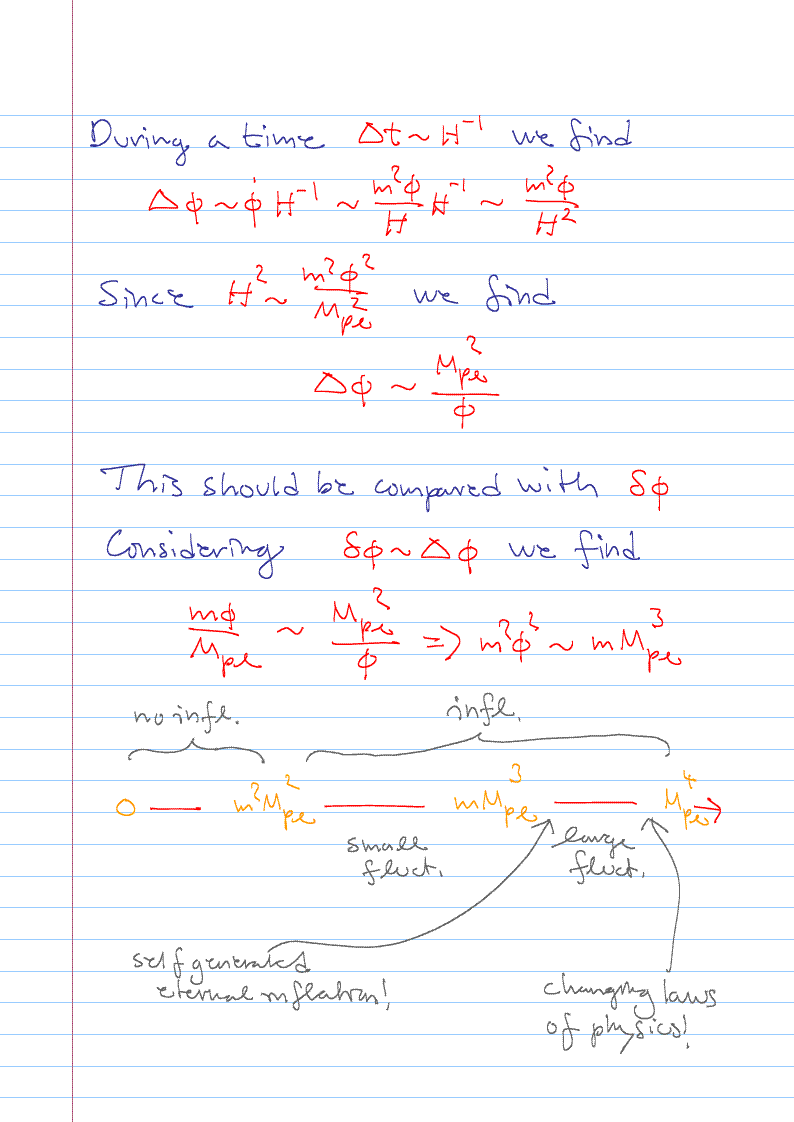 During a time Δt ~ H⁻¹ we find
Δφ ~ φ̇ H⁻¹ ~ m²φ/H H⁻¹ ~ m²φ/H²
Since H² ~ m²φ²/M_pl² we find
Δφ ~ M_pl²/φ
This should be compared with δφ
Considering δφ ~ Δφ we find
mφ/M_pl ~ M_pl²/φ => m²φ² ~ mM_pl³
no infl. infl.
0 — m²M_pl² — mM_pl³ — M_pl⁴
small fluct. large fluct.
self generated
eternal inflation!
changing laws
of physics!